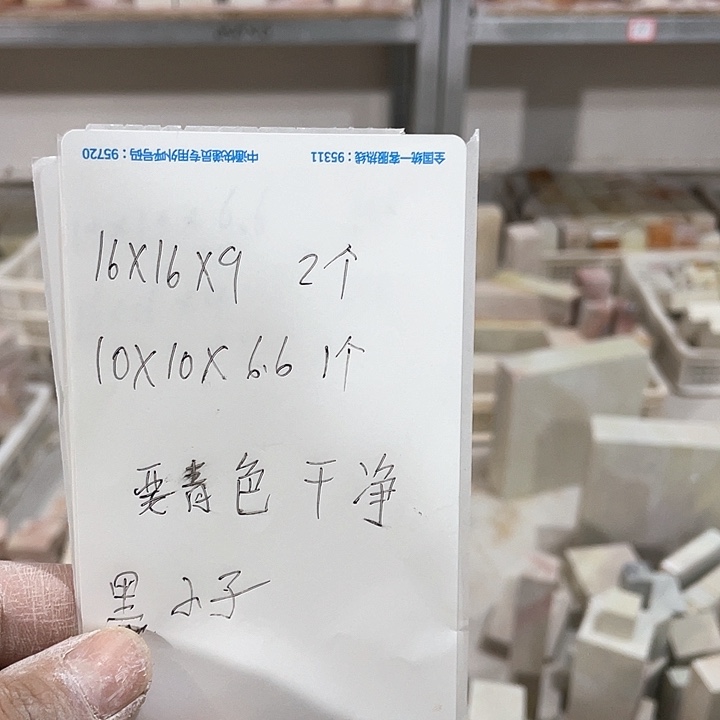 全国统一客服热线：95311 中通快递员专用外呼号码：95720
16X16X9 2个
10X10X6.6 1个
要青色干净
黑小子